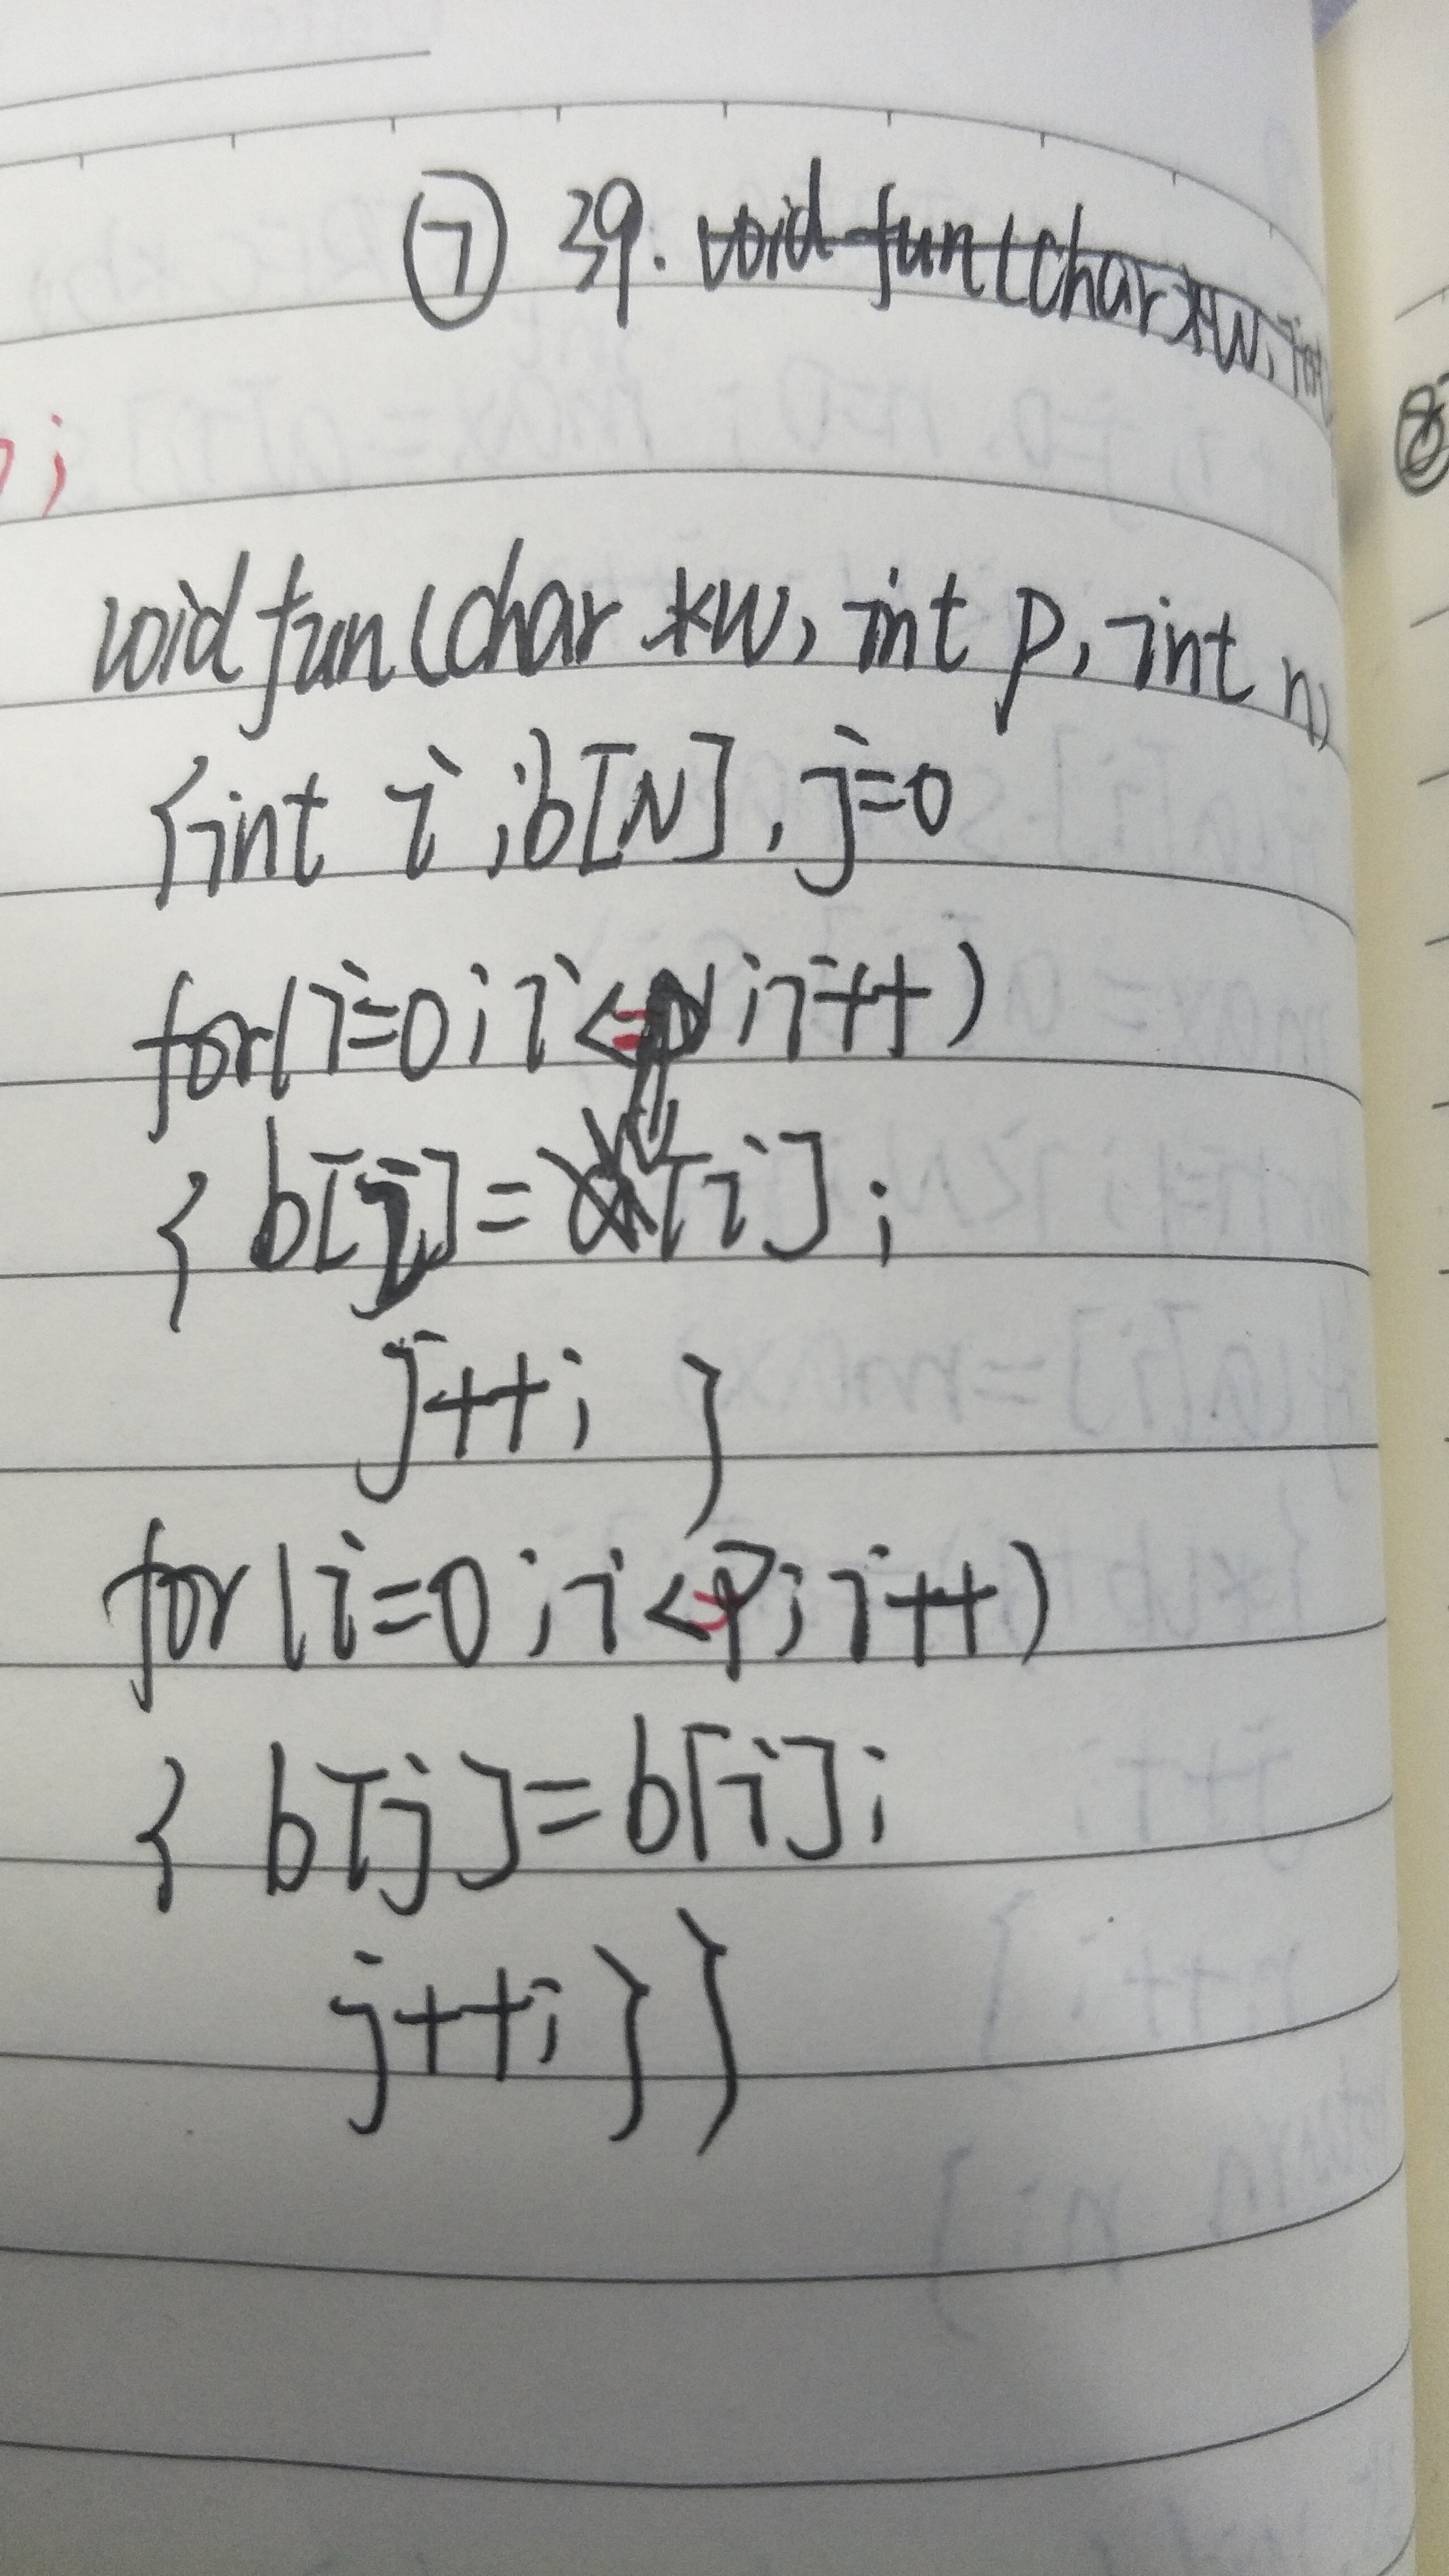 ⑦ 39. void fun(char *w, int
;
void fun(char *w, int p, int n)
{int i, b[N], j=0
for(i=0; i<= ; i++)
{ b[j]= w[i];
j++; }
for(i=0; i<=p; i++)
{ b[j]=b[i];
j++; } }